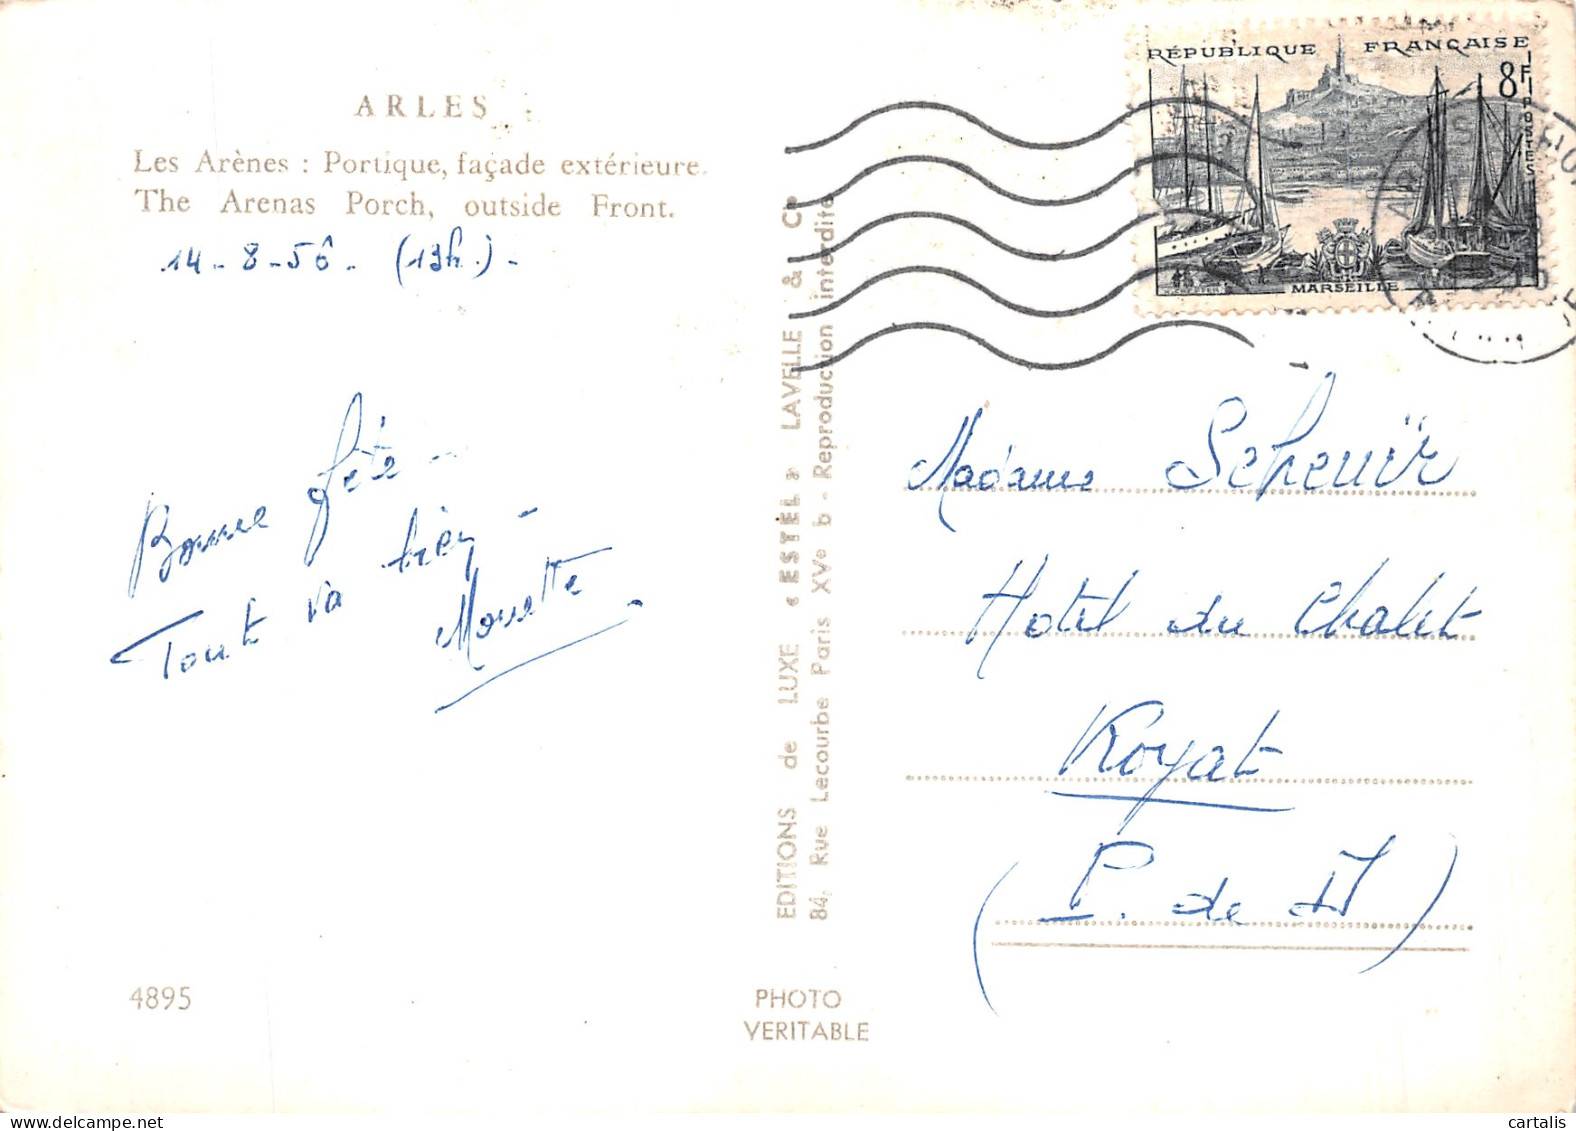 ARLES
Les Arènes : Portique, façade extérieure.
The Arenas Porch, outside Front.
14-8-56. (19h.)-
Bonne fête -
Tout va bien -
Mouette
4895
EDITIONS de LUXE « ESTEL » LAVELLE & Cie
84, Rue Lecourbe Paris XVe b - Reproduction interdite
PHOTO
VERITABLE
RÉPUBLIQUE FRANÇAISE
8F
POSTES
MARSEILLE
Madame Scheuïr
Hotel du Chalet
Royat
(P. de D)
cartalis